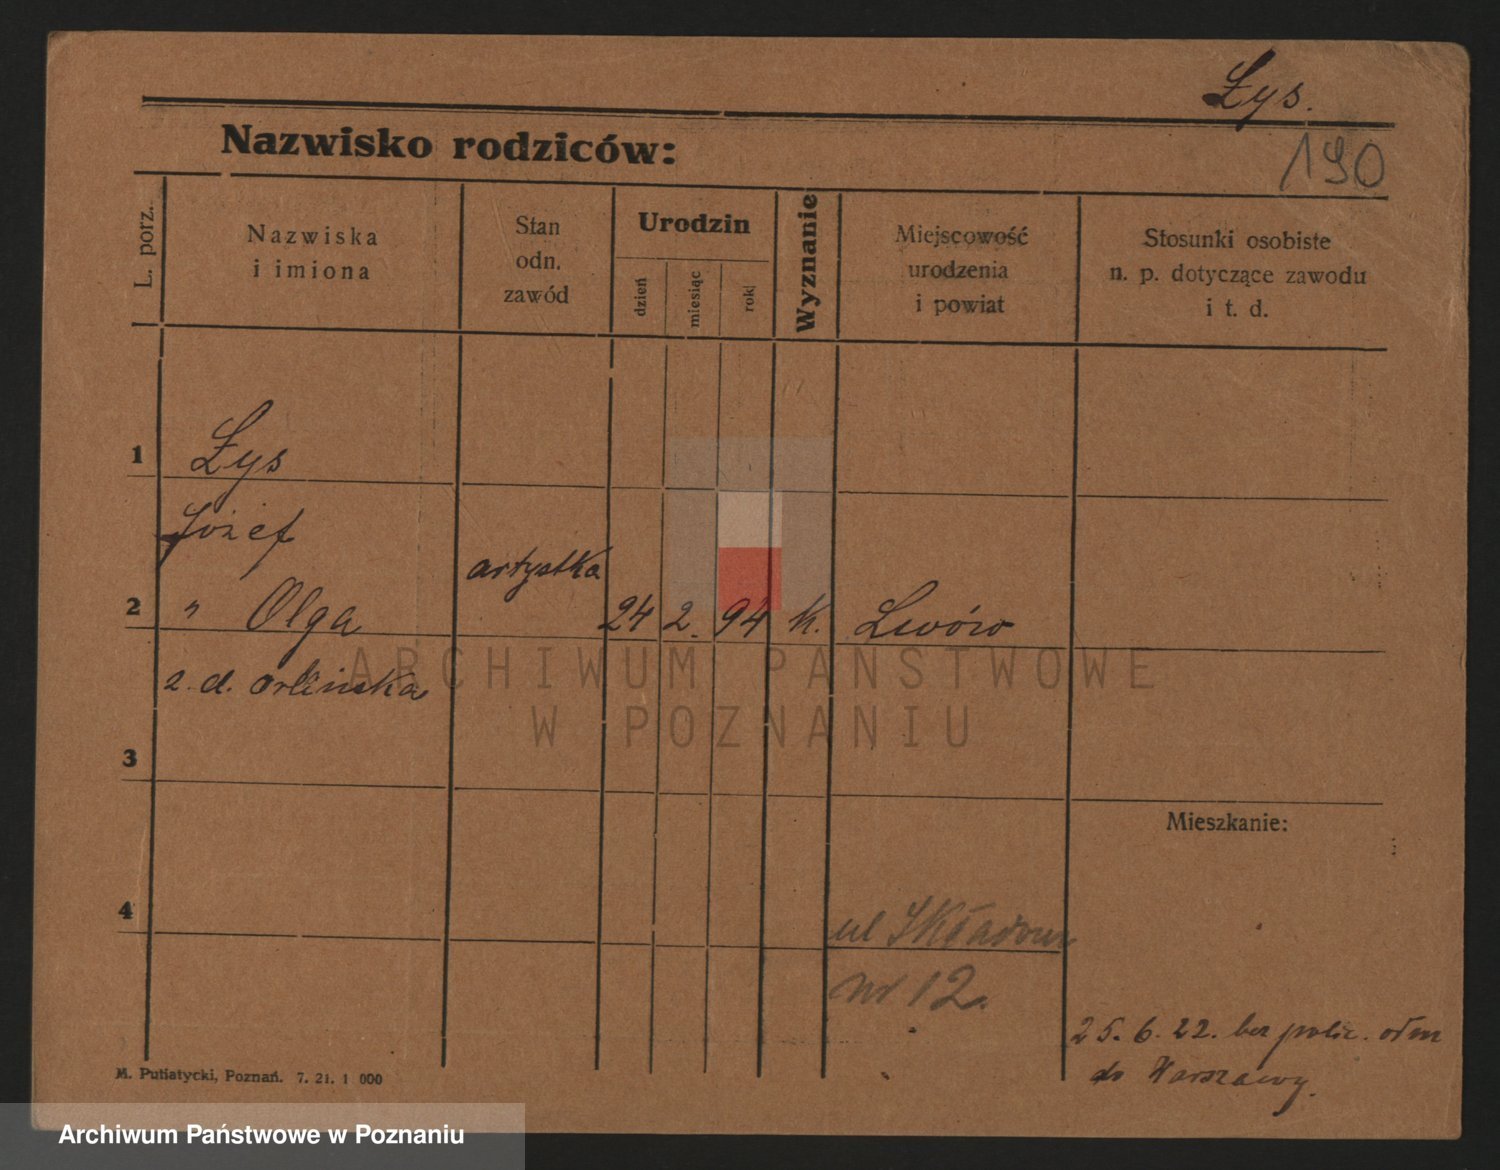 Łys.
190
Nazwisko rodziców:
L. porz.
Nazwiska
i imiona
Stan
odn.
zawód
Urodzin
dzień
miesiąc
rok
Wyznanie
Miejscowość
urodzenia
i powiat
Stosunki osobiste
n. p. dotyczące zawodu
i t. d.
1 Łys
Józef
artystka
2 " Olga 24 2. 94 k. Lwów
z. d. Orlińska
3
Mieszkanie:
4
ul Składowa
nr 12.
25. 6. 22. bez polic. odm
do Warszawy.
M. Putiatycki, Poznań. 7. 21. 1 000
ARCHIWUM PAŃSTWOWE
W POZNANIU
Archiwum Państwowe w Poznaniu